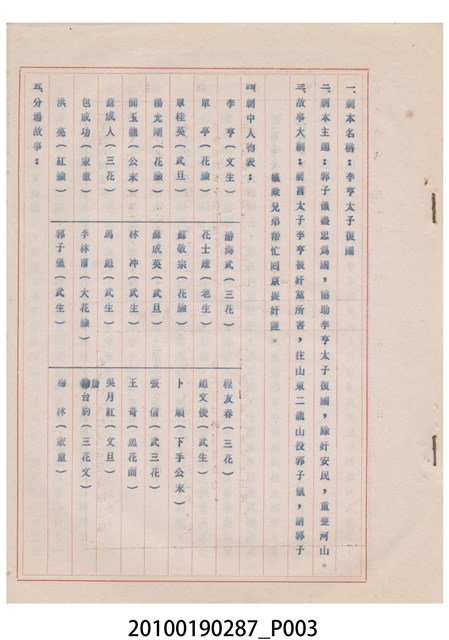 一、劇本名稱：李亨太子復國
二、劇本主題：郭子儀義忠爲國，協助李亨太子復國，除奸安民，重整河山。
三、故事大綱：前言太子李亨被奸黨所害，往山東二龍山投郭子儀，請郭子
儀衆兄弟幫忙回京捉奸匪。
四、劇中人物表：
李亨（文生） 游海武（三花） 程友春（三花）
單亭（花臉） 花士雄（老生） 趙文俊（武生）
單桂英（武旦） 蘇敬宗（花臉） 卜順（下手公末）
楊允剛（花臉） 蘇成英（武旦） 張信（武三花）
關玉龍（公末） 林冲（武生） 王奇（黑花面）
蘇成人（三花） 馬彪（武生） 吳月紅（文旦）
包成功（家童） 李林甫（大花臉） 游台豹（三花文）
洪亮（紅臉） 郭子儀（武生） 梅林（家童）
五、分場故事：
20100190287_P003